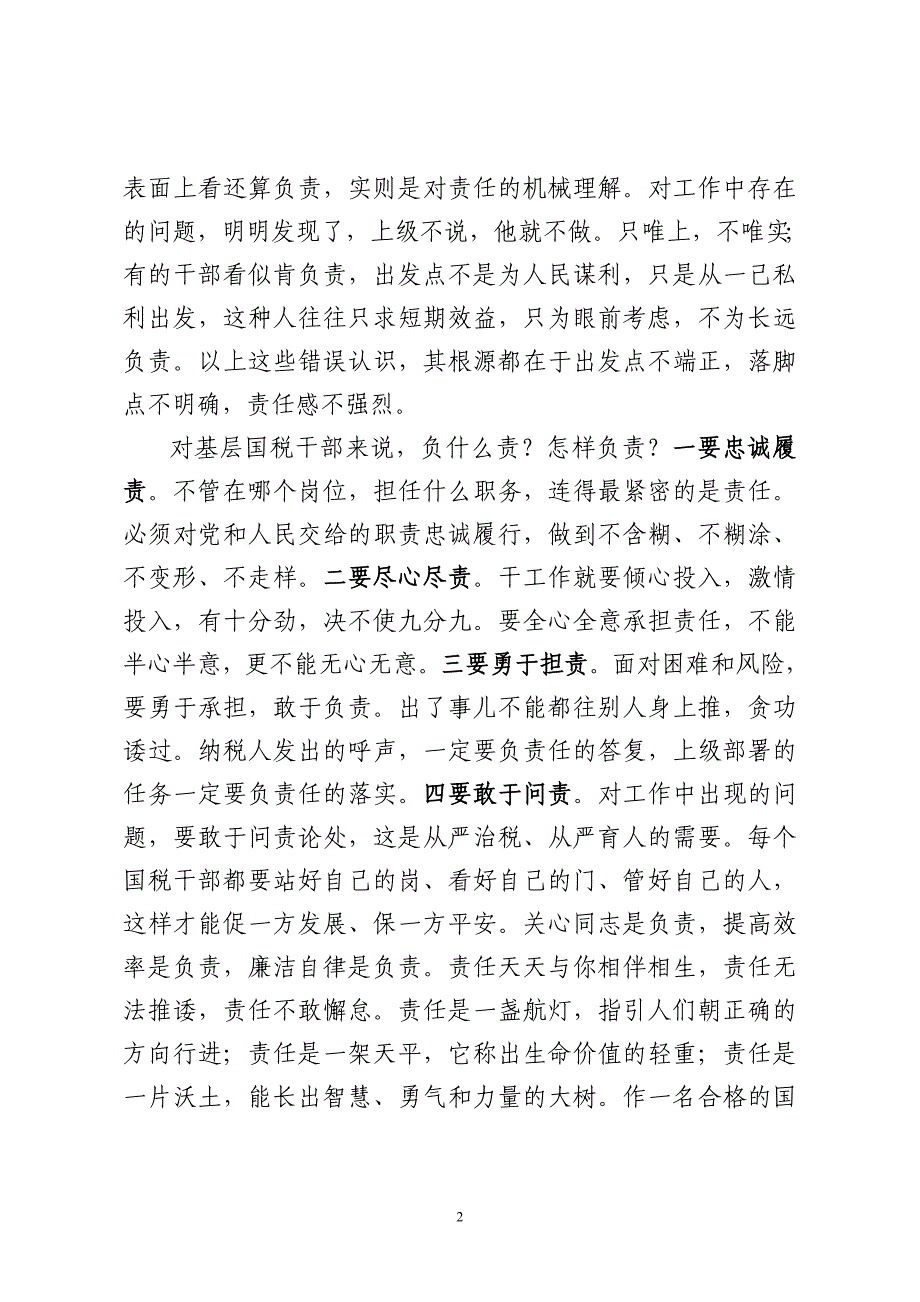 表面上看还算负责，实则是对责任的机械理解。对工作中存在
的问题，明明发现了，上级不说，他就不做。只唯上，不唯实;
有的干部看似肯负责，出发点不是为人民谋利，只是从一己私
利出发，这种人往往只求短期效益，只为眼前考虑，不为长远
负责。以上这些错误认识，其根源都在于出发点不端正，落脚
点不明确，责任感不强烈。
对基层国税干部来说，负什么责？怎样负责？一要忠诚履
责。不管在哪个岗位，担任什么职务，连得最紧密的是责任。
必须对党和人民交给的职责忠诚履行，做到不含糊、不糊涂、
不变形、不走样。二要尽心尽责。干工作就要倾心投入，激情
投入，有十分劲，决不使九分九。要全心全意承担责任，不能
半心半意，更不能无心无意。三要勇于担责。面对困难和风险，
要勇于承担，敢于负责。出了事儿不能都往别人身上推，贪功
诿过。纳税人发出的呼声，一定要负责任的答复，上级部署的
任务一定要负责任的落实。四要敢于问责。对工作中出现的问
题，要敢于问责论处，这是从严治税、从严育人的需要。每个
国税干部都要站好自己的岗、看好自己的门、管好自己的人，
这样才能促一方发展、保一方平安。关心同志是负责，提高效
率是负责，廉洁自律是负责。责任天天与你相伴相生，责任无
法推诿，责任不敢懈怠。责任是一盏航灯，指引人们朝正确的
方向行进；责任是一架天平，它称出生命价值的轻重；责任是
一片沃土，能长出智慧、勇气和力量的大树。作一名合格的国
2